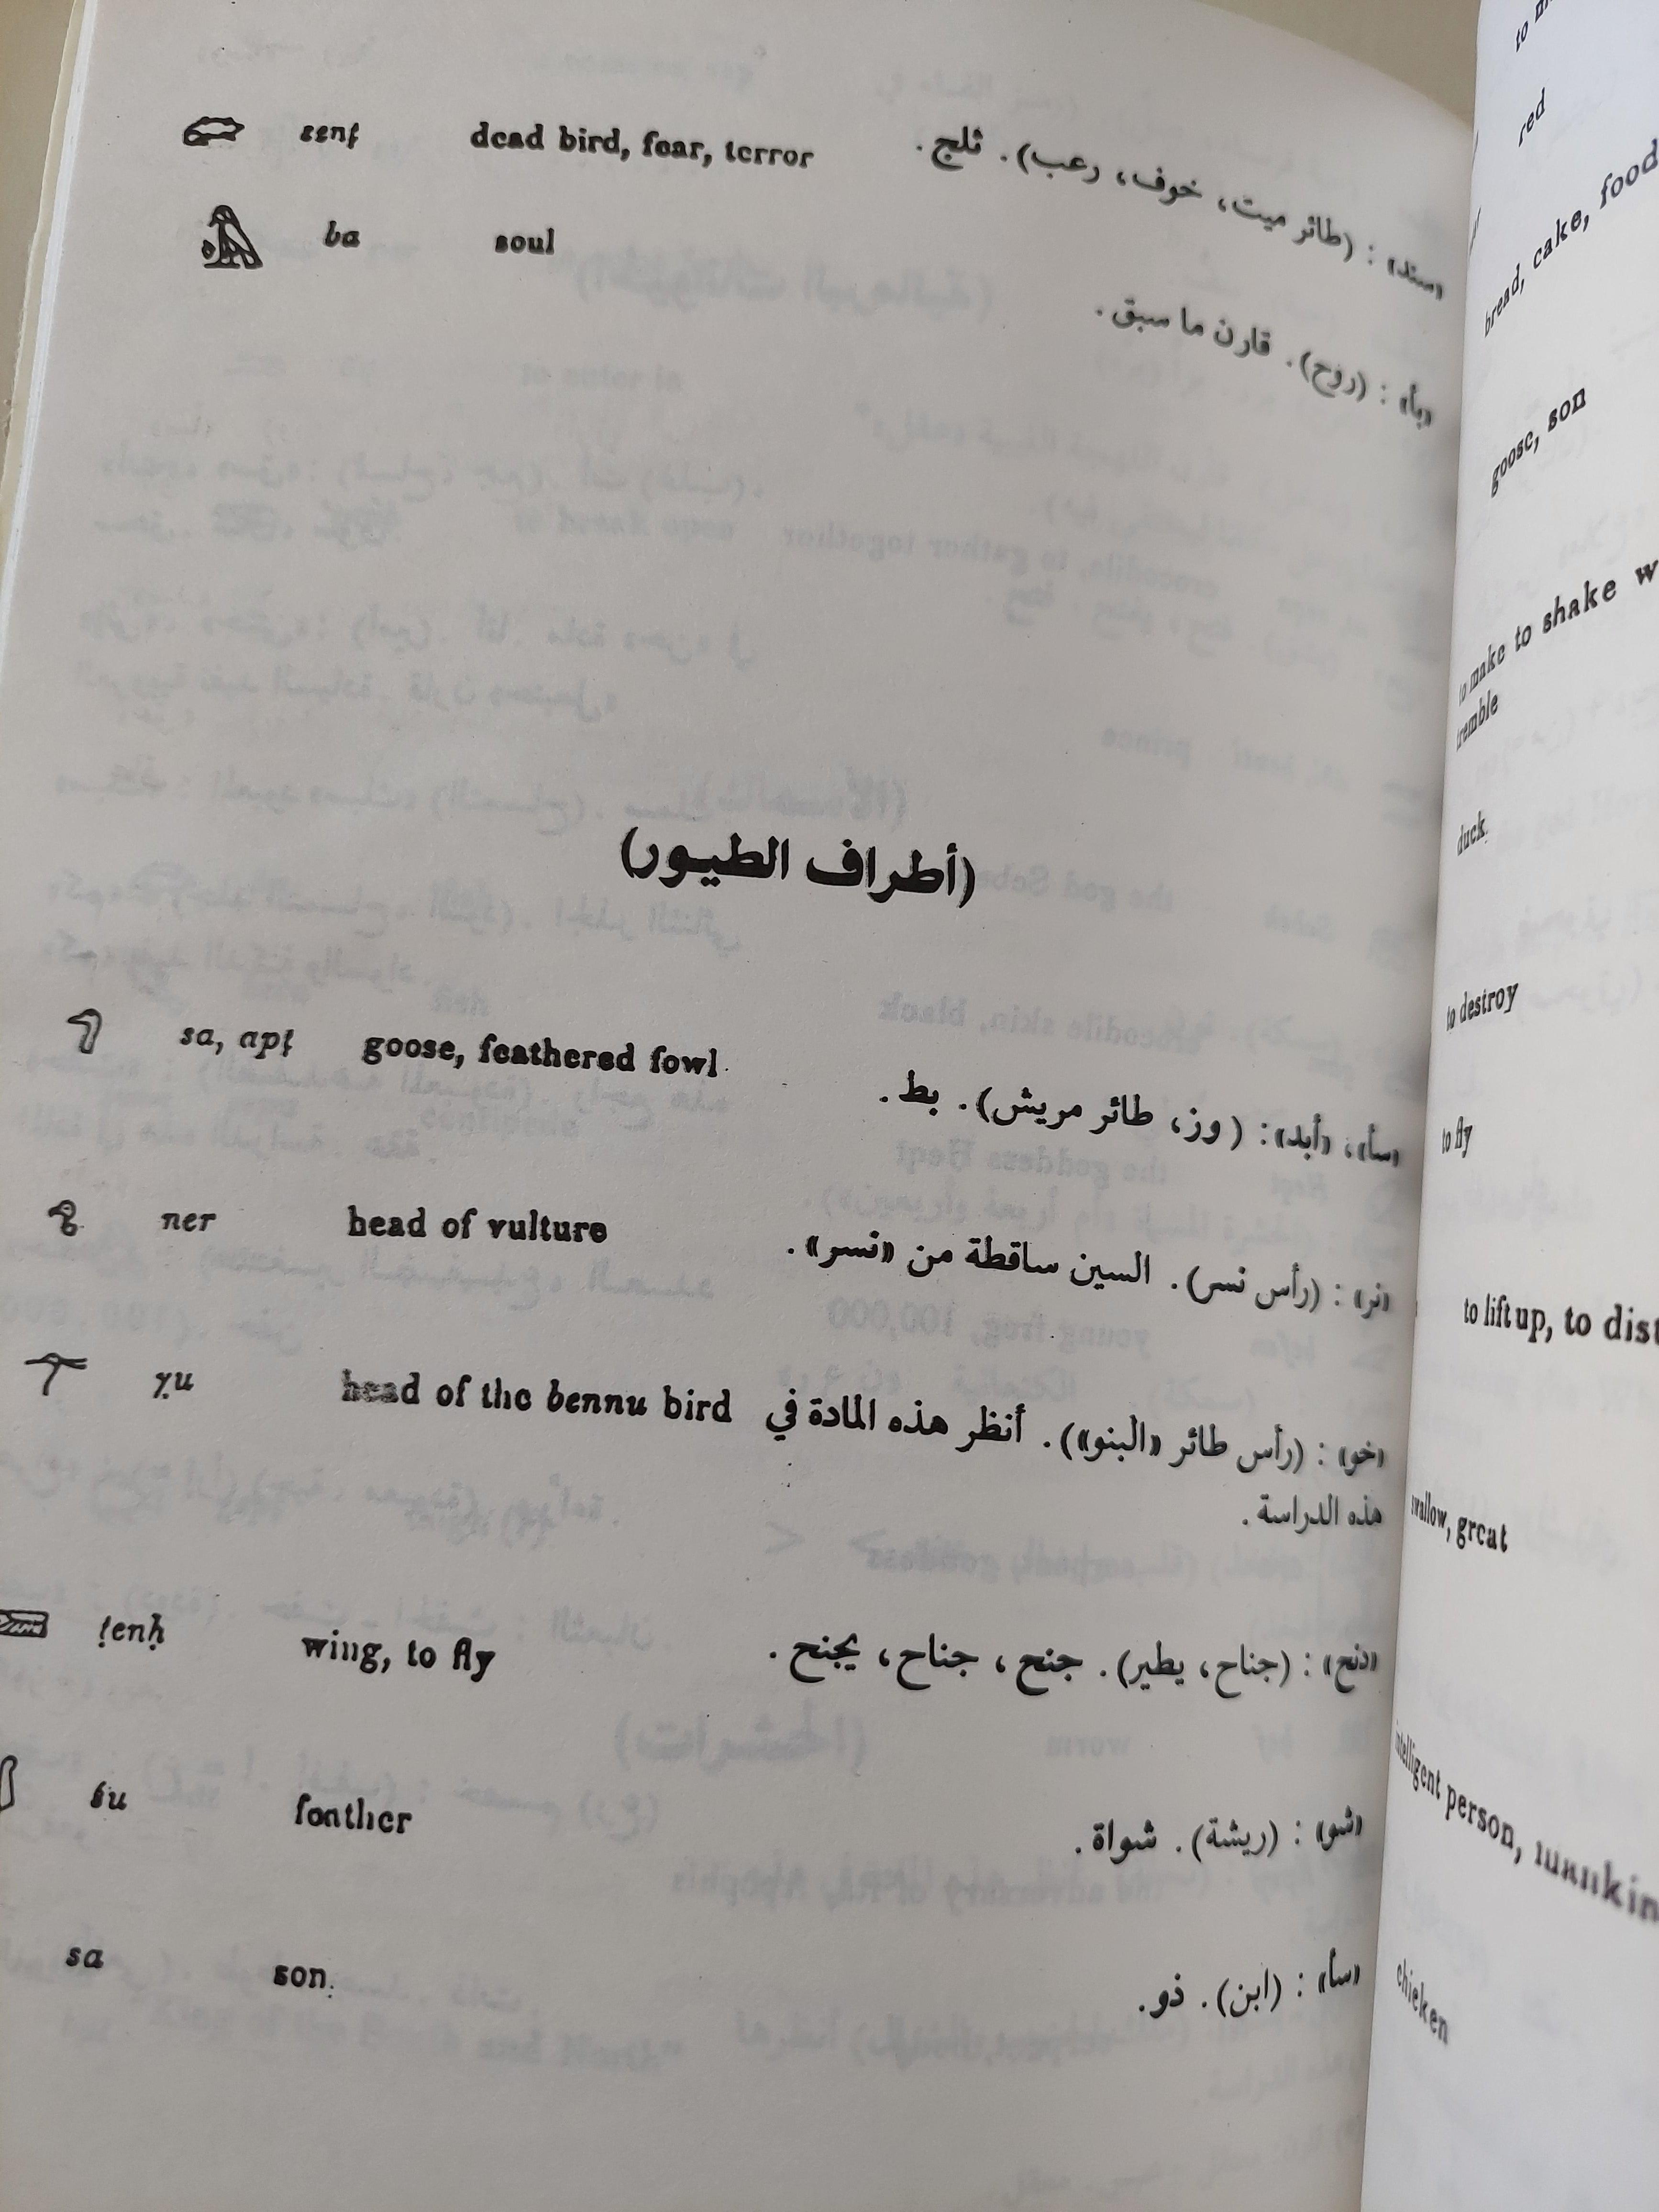 senṭ dead bird, fear, terror
«سند» : (طائر ميت، خوف، رعب). ثلج .
ba soul
«بأ» : (روح). قارن ما سبق .
(أطراف الطيور)
sa, apṭ goose, feathered fowl.
«سأ»، «أبد»: (وز، طائر مريش). بط .
ner head of vulture
«نر» : (رأس نسر). السين ساقطة من «نسر».
χu head of the bennu bird
«خو» : (رأس طائر «البنو»). أنظر هذه المادة في
هذه الدراسة .
ṭenḥ wing, to fly
«دنح» : (جناح، يطير). جنح ، جناح ، يجنح .
śu feather
«شو» : (ريشة). شواة .
sa son.
«سأ» : (ابن). ذو .
red
bread, cake, food
goose, son
to make to shake
tremble
duck.
to destroy
to fly
to lift up, to
great
intelligent person,
chicken